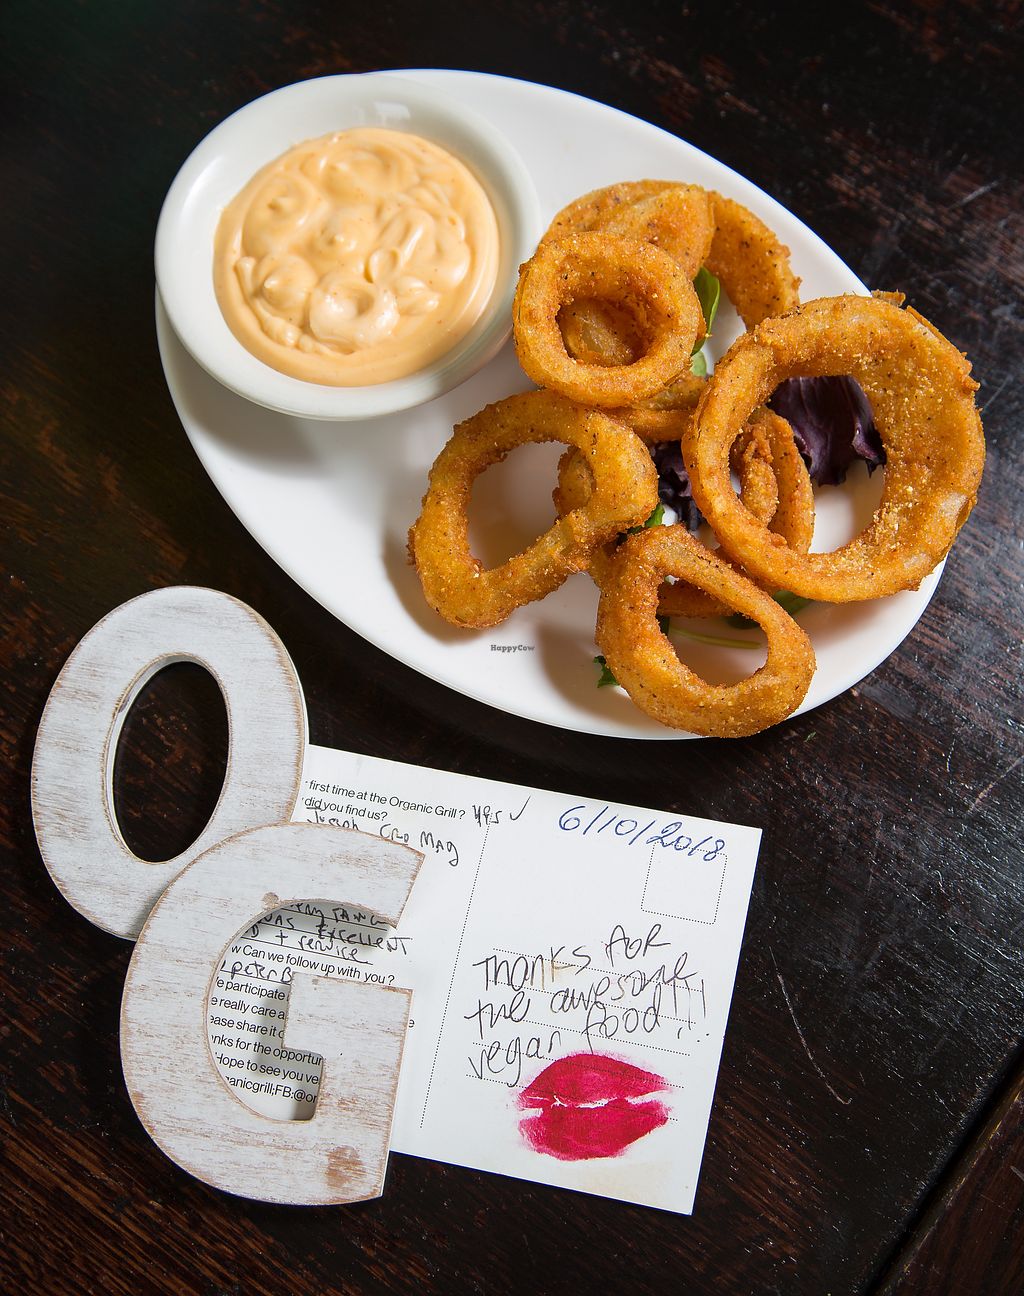 HappyCow
O
G
first time at the Organic Grill? yes ✓
did you find us?
Joseph Cro Mag
was Excellent
+ service
w Can we follow up with you?
peter B
e participate
e really care a
ease share it
nks for the opportun
Hope to see you ve
ganicgrill;FB:@or
6/10/2018
Thanks for
the awesome
vegan food!!!